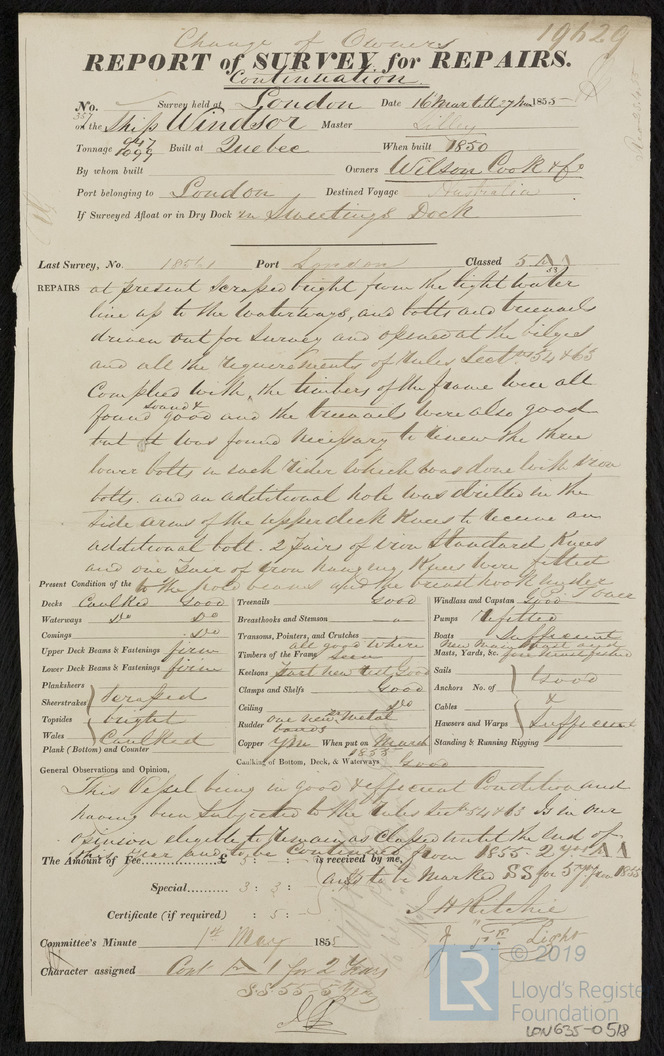 Change of Owners
19629
REPORT of SURVEY for REPAIRS.
Continuation
No. Survey held at London Date 16 Mar till 27 1855
on the Ship Windsor Master Lilley
Tonnage 1099 Built at Quebec When built 1850
By whom built Owners Wilson Cook & Co
Port belonging to London Destined Voyage Australia
If Surveyed Afloat or in Dry Dock in Sweetings Dock
Last Survey, No. 18561 Port London Classed 5 A
53
REPAIRS at present scraped bright from the light water
line up to the waterways, and bolts and treenails
driven out for survey and opened at the bilges
and all the requirements of Rules Sectns 54 & 65
Complied with, the timbers of the frame were all
found sound & good and the treenails were also good
but it was found necessary to renew the three
lower bolts in each rider which was done with iron
bolts. and an additional hole was drilled in the
side arms of the upper deck Knees to receive an
additional bolt. 2 Pairs of iron Standard Knees
and one Pair of iron hanging Knees were fitted
to the hold beams and the breasthook under
Present Condition of the
Decks Caulked Good
Waterways Do Do
Comings Do
Upper Deck Beams & Fastenings firm
Lower Deck Beams & Fastenings firm
Planksheers
Sheerstrakes scraped
Topsides bright
Wales Caulked
Plank (Bottom) and Counter
Treenails Good
Breasthooks and Stemson
Transoms, Pointers, and Crutches
Timbers of the Frame all good where seen
Keelsons Part new rest Good
Clamps and Shelfs Good
Ceiling Do
Rudder one new metal bands
Copper YM When put on March 1855
Caulking of Bottom, Deck, & Waterways Good
Windlass and Capstan Good
Pumps refitted
Boats Sufficient
Masts, Yards, &c.
Sails Good
Anchors No. of
Cables &
Hawsers and Warps Sufficient
Standing & Running Rigging
General Observations and Opinion,
This Vessel being in good & efficient Condition and
having been Subjected to the Rules Sec 54 & 65 is in our
opinion eligible to remain as Classed until the end of
this year and to be Continued from 1855 2 yrs A
and to be marked SS for 5 yrs from 1855
The Amount of Fee £ 5 : is received by me,
Special 3 : 3 :
Certificate (if required) : 5 :
J H Ritchie
Light
Committee's Minute 1st May 1855
Character assigned Cont A 1 for 2 Years
SS 55 - 5 Yrs
LR
© 2019
Lloyd's Register
Foundation
LON635-0518